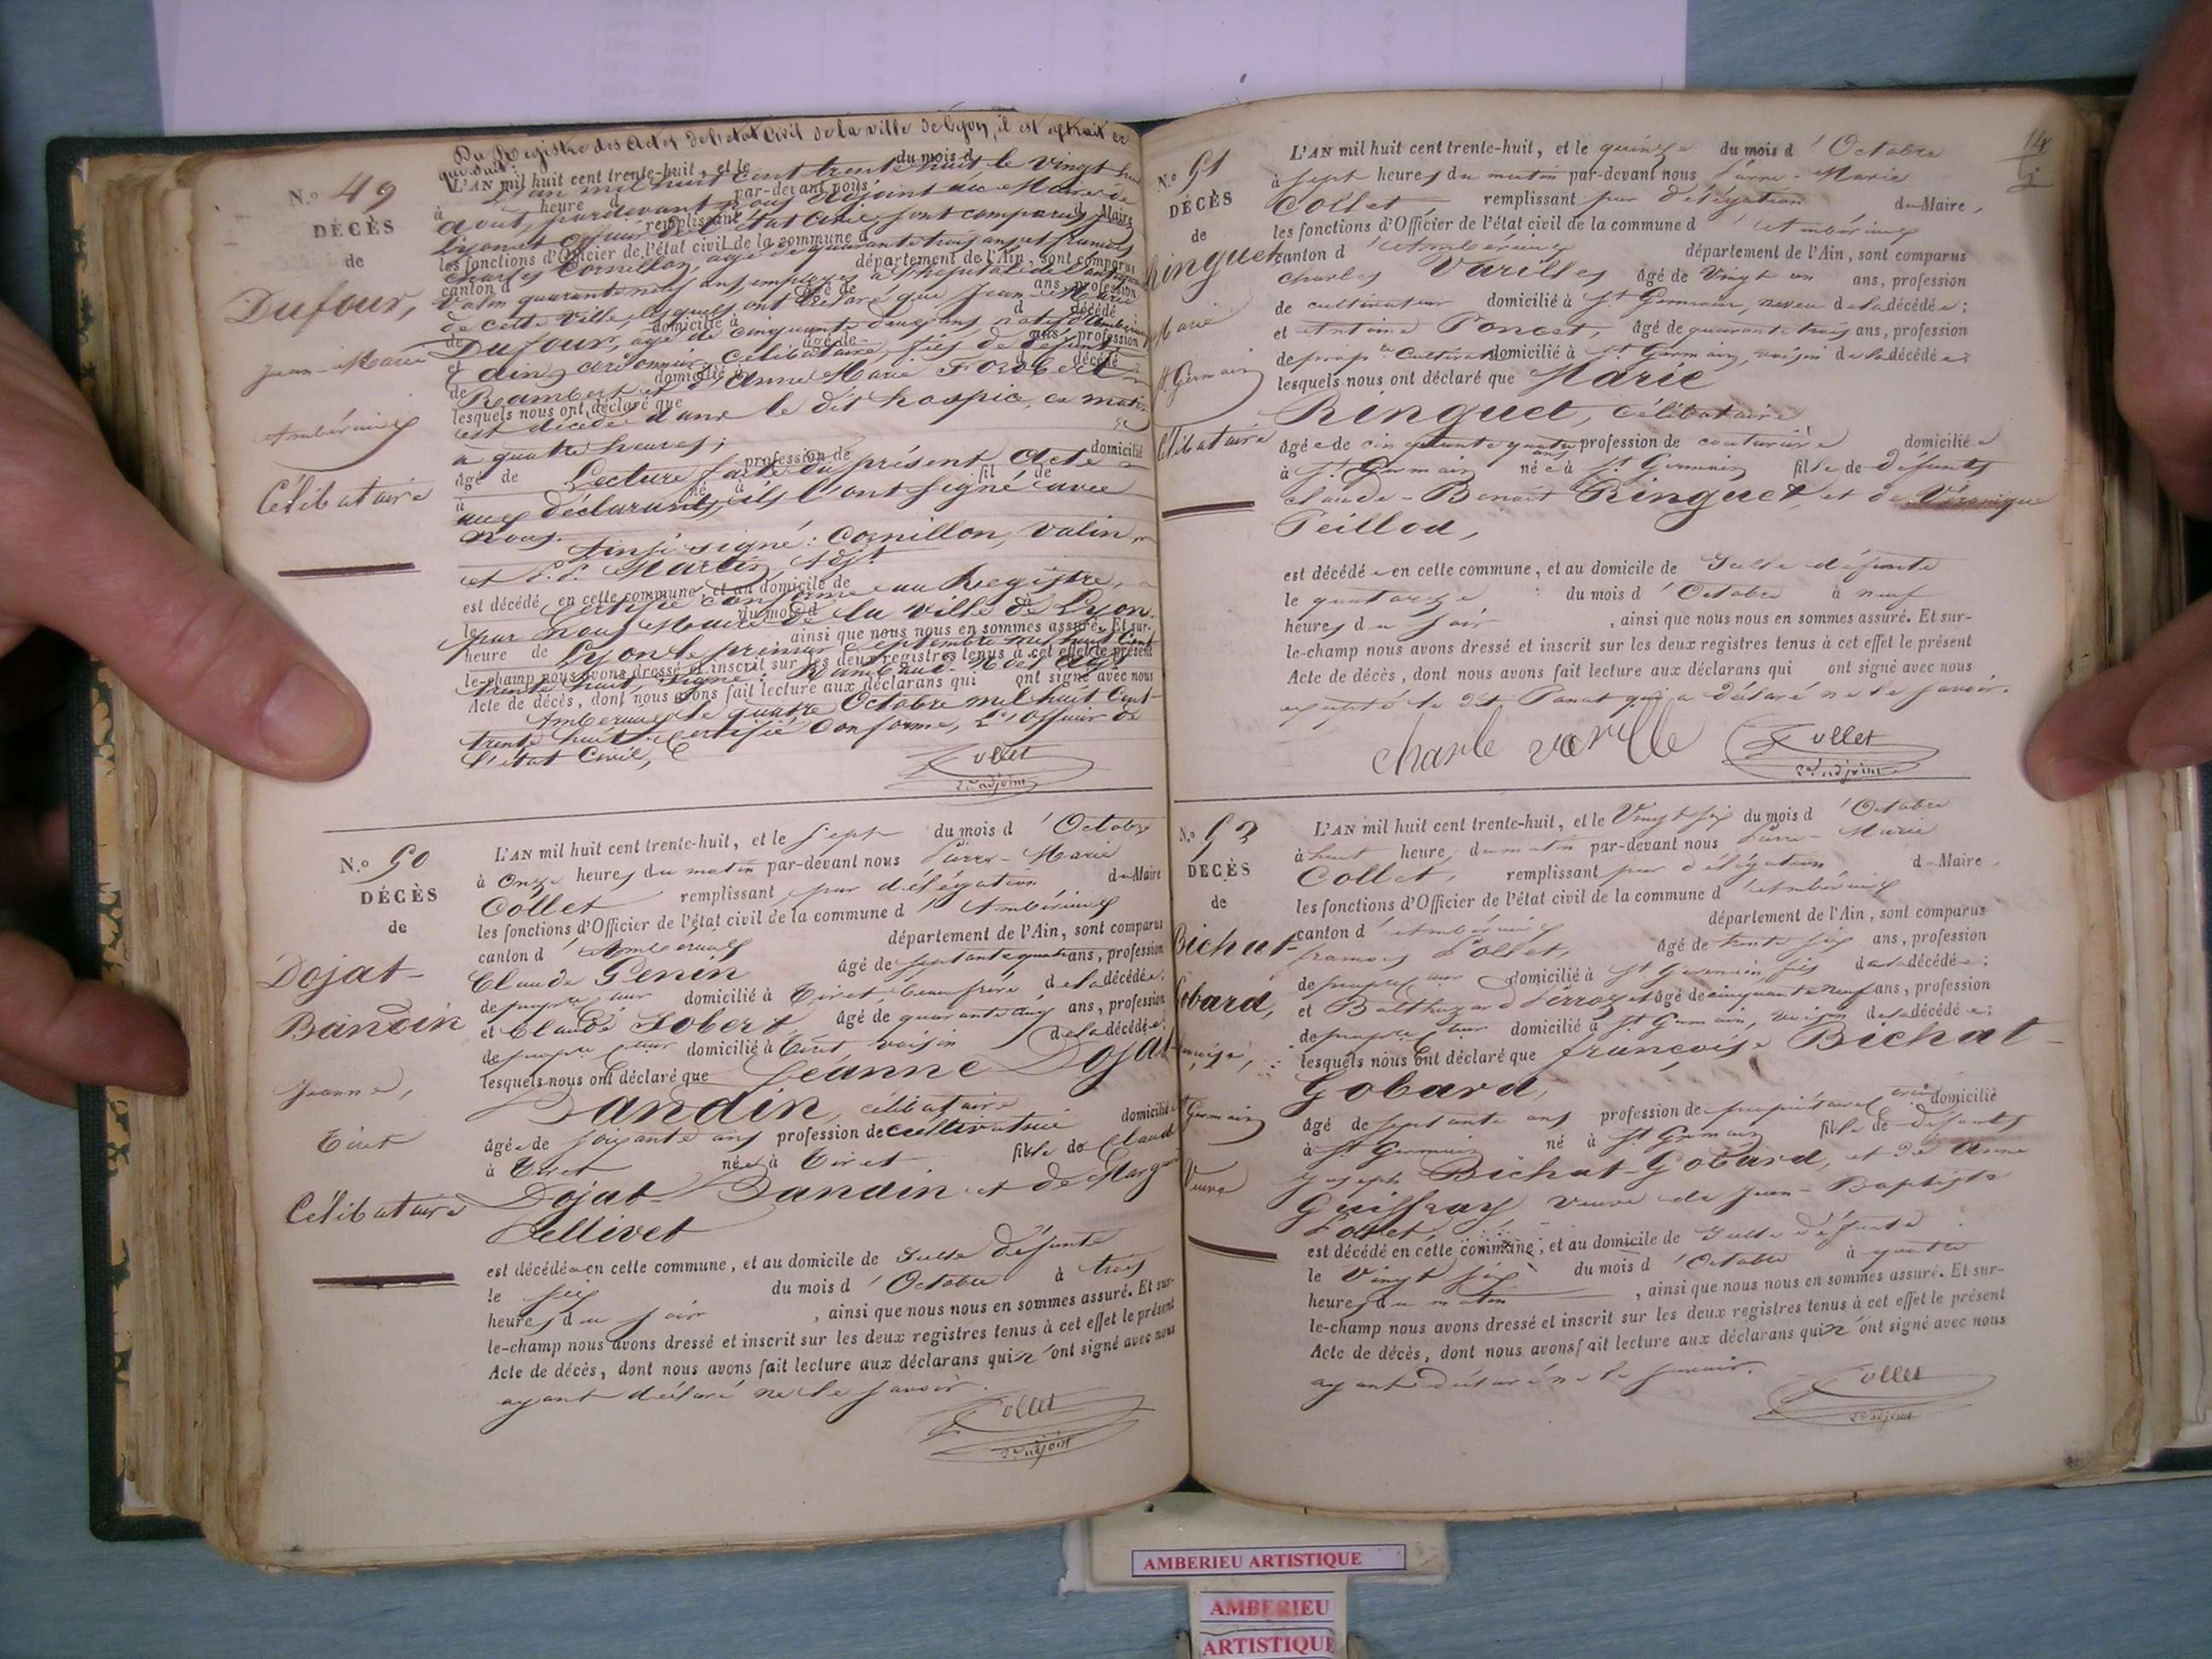 Du Registre des Actes de l'état Civil de la ville de Lyon, il est extrait ce
qui suit:
N.º 49
DÉCÈS
de
Dufour,
Jean-Marie
Ambérieux
Célibataire
L'AN mil huit cent trente-huit, et le du mois d
L'an mil huit cent trente huit, le vingt huit
à heure d par-devant nous
août, pardevant nous adjoint au Maire de
remplissant d Maire,
Lyon et officier de l'état civil, sont comparus
les fonctions d'Officier de l'état civil de la commune d
Charles Cornillon, agé de quarante trois ans, et francois
canton d département de l'Ain, sont comparus
Valin quarante neuf ans, employés à l'hopital de
âgé de ans, profession
de cette ville, lesquels ont déclaré que Jean-Marie
de domicilié à d décédé
Dufour, agé de cinquante deux ans, natif d'Ambérieux
et âgé de ans, profession
(ain) Célibataire, fils de défunts
de domicilié à d décédé
Rambert et d'Anne Marie
lesquels nous ont déclaré que
est décédé dans le dit hospice, ce matin
à quatre heures;
âgé de profession de domicilié
Lecture faite du présent Acte
à né à fil de
aux déclarants, ils l'ont signé avec
nous.
Ainsi signé: Cornillon, Valin,
et Martin, adjt
est décédé en cette commune, et au domicile de
Certifié conforme au Registre,
le du mois d à
par nous Maire de la ville de Lyon.
heure de , ainsi que nous nous en sommes assuré. Et sur-
Lyon le premier Septembre mil huit Cent
le-champ nous avons dressé et inscrit sur les deux registres tenus à cet effet le présent
trente huit, signé:
Acte de décès, dont nous avons fait lecture aux déclarans qui ont signé avec nous
Ambérieux le quatre Octobre mil huit Cent
trente huit. Certifié Conforme, L'Officier de
l'état Civil,
Collet
2e adjoint
N.º 50
DÉCÈS
de
Dojat-
Bandin
Jeanne,
Tiret
Célibataire
L'AN mil huit cent trente-huit, et le sept du mois d'Octobre
à onze heures du matin par-devant nous Pierre-Marie
Collet remplissant par délégation du Maire
les fonctions d'Officier de l'état civil de la commune d'Ambérieux
canton d'Ambérieux département de l'Ain, sont comparus
Claude Genin âgé de septante quatre ans, profession
de domicilié à Tiret, beau frère de la décédée;
et Claude Jobert âgé de quarante cinq ans, profession
de domicilié à Tiret voisin de la décédée;
lesquels nous ont déclaré que Jeanne Dojat
Bandin, célibataire
âgée de soixante ans profession de cultivatrice domiciliée
à Tiret née à Tiret fille de Claude
Dojat Bandin et de
Pellivet
est décédée en cette commune, et au domicile de Sulle défunte
le six du mois d'Octobre à trois
heures du soir , ainsi que nous nous en sommes assuré. Et sur-
le-champ nous avons dressé et inscrit sur les deux registres tenus à cet effet le présent
Acte de décès, dont nous avons fait lecture aux déclarans qui n'ont signé avec nous
ayant déclaré ne le savoir.
Collet
2e adjoint
14
N.º 51
DÉCÈS
de
Ringuet
Marie
St Germain
Célibataire
L'AN mil huit cent trente-huit, et le quinze du mois d'Octobre
à sept heures du matin par-devant nous Pierre-Marie
Collet, remplissant par délégation du Maire,
les fonctions d'Officier de l'état civil de la commune d'Ambérieux
canton d'Ambérieux département de l'Ain, sont comparus
Charles Varilles âgé de vingt un ans, profession
de cultivateur domicilié à St Germain, neveu de la décédée;
et Antoine Poncet, âgé de quarante trois ans, profession
de domicilié à St Germain, voisin de la décédée;
lesquels nous ont déclaré que Marie
Ringuet, célibataire
âgée de cinquante quatre ans profession de couturière domiciliée
à St Germain née à St Germain fille de défunts
Claude-Benoit Ringuet, et de Véronique
Peillod,
est décédée en cette commune, et au domicile de Sulle défunte
le quatorze du mois d'Octobre à neuf
heures du soir , ainsi que nous nous en sommes assuré. Et sur-
le-champ nous avons dressé et inscrit sur les deux registres tenus à cet effet le présent
Acte de décès, dont nous avons fait lecture aux déclarans qui ont signé avec nous
excepté le dit Ponset qui a déclaré ne le savoir.
charle varille Collet
2e adjoint
N.º 52
DÉCÈS
de
Bichat-
Gobard,
Germain
Veuve
L'AN mil huit cent trente-huit, et le vingt six du mois d'Octobre
à huit heures du matin par-devant nous Pierre-Marie
Collet, remplissant par délégation du Maire,
les fonctions d'Officier de l'état civil de la commune d'Ambérieux
canton d'Ambérieux département de l'Ain, sont comparus
francois Pollet, âgé de trente six ans, profession
de domicilié à St Germain fils de la décédée;
et Balthazard âgé de cinquante neuf ans, profession
de domicilié à St Germain, voisin de la décédée;
lesquels nous ont déclaré que françoise Bichat-
Gobard,
âgé de septante ans profession de propriétaire domicilié
à St Germain né à St Germain fille de défunts
Joseph Bichat-Gobard, et de Anne
Guiffray veuve de Jean-Baptiste
Pollet,
est décédé en cette commune, et au domicile de Sulle défunte
le vingt six du mois d'Octobre à quatre
heures du matin , ainsi que nous nous en sommes assuré. Et sur-
le-champ nous avons dressé et inscrit sur les deux registres tenus à cet effet le présent
Acte de décès, dont nous avons fait lecture aux déclarans qui n'ont signé avec nous
ayant déclaré ne le savoir.
Collet
2e adjoint
AMBERIEU ARTISTIQUE
AMBERIEU
ARTISTIQUE